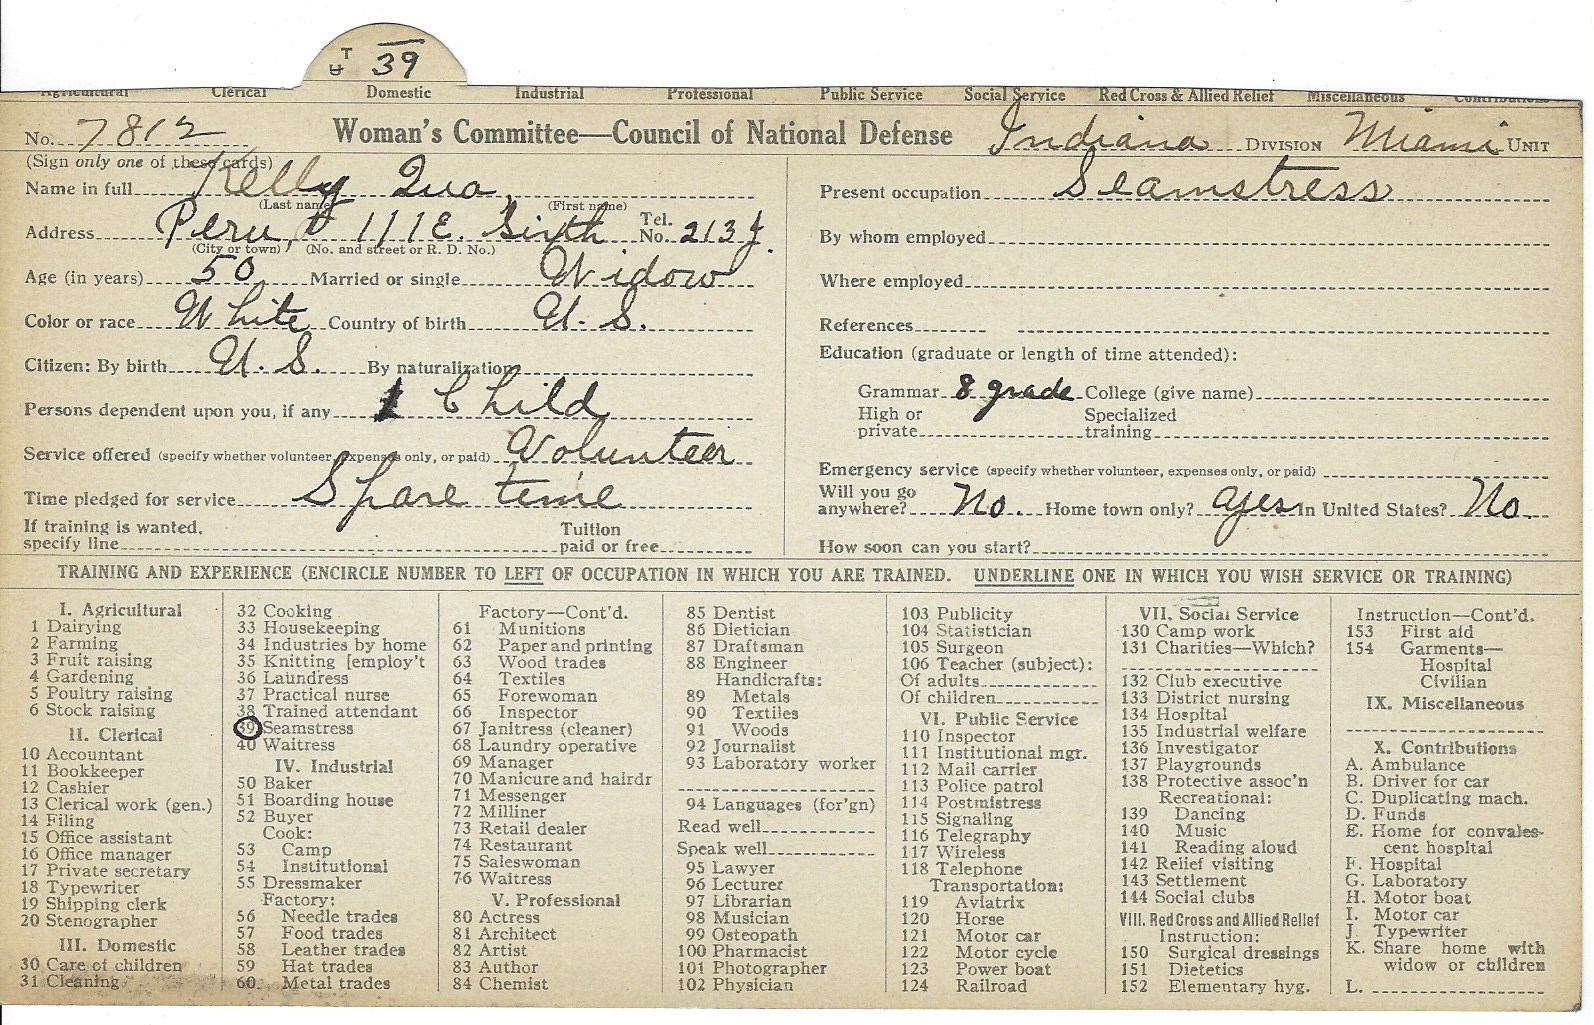 T
U 39
Agricultural Clerical Domestic Industrial Professional Public Service Social Service Red Cross & Allied Relief Miscellaneous Contributions
No. 7812 Woman's Committee—Council of National Defense Indiana DIVISION Miami UNIT
(Sign only one of these cards)
Name in full Kelly
(Last name) (First name)
Address Peru, 111 E. Sixth Tel. No. 213
(City or town) (No. and street or R. D. No.)
Age (in years) 50 Married or single Widow
Color or race White Country of birth U. S.
Citizen: By birth U. S. By naturalization
Persons dependent upon you, if any 1 Child
Service offered (specify whether volunteer, expenses only, or paid) Volunteer
Time pledged for service Spare time
If training is wanted, specify line Tuition paid or free
Present occupation Seamstress
By whom employed
Where employed
References
Education (graduate or length of time attended):
Grammar 8 grade College (give name)
High or private Specialized training
Emergency service (specify whether volunteer, expenses only, or paid)
Will you go anywhere? No. Home town only? yes In United States? No.
How soon can you start?
TRAINING AND EXPERIENCE (ENCIRCLE NUMBER TO LEFT OF OCCUPATION IN WHICH YOU ARE TRAINED. UNDERLINE ONE IN WHICH YOU WISH SERVICE OR TRAINING)
I. Agricultural
1 Dairying
2 Farming
3 Fruit raising
4 Gardening
5 Poultry raising
6 Stock raising
II. Clerical
10 Accountant
11 Bookkeeper
12 Cashier
13 Clerical work (gen.)
14 Filing
15 Office assistant
16 Office manager
17 Private secretary
18 Typewriter
19 Shipping clerk
20 Stenographer
III. Domestic
30 Care of children
31 Cleaning
32 Cooking
33 Housekeeping
34 Industries by home
35 Knitting [employ't
36 Laundress
37 Practical nurse
38 Trained attendant
39 Seamstress
40 Waitress
IV. Industrial
50 Baker
51 Boarding house
52 Buyer
Cook:
53 Camp
54 Institutional
55 Dressmaker
Factory:
56 Needle trades
57 Food trades
58 Leather trades
59 Hat trades
60 Metal trades
Factory—Cont'd.
61 Munitions
62 Paper and printing
63 Wood trades
64 Textiles
65 Forewoman
66 Inspector
67 Janitress (cleaner)
68 Laundry operative
69 Manager
70 Manicure and hairdr
71 Messenger
72 Milliner
73 Retail dealer
74 Restaurant
75 Saleswoman
76 Waitress
V. Professional
80 Actress
81 Architect
82 Artist
83 Author
84 Chemist
85 Dentist
86 Dietician
87 Draftsman
88 Engineer
Handicrafts:
89 Metals
90 Textiles
91 Woods
92 Journalist
93 Laboratory worker
94 Languages (for'gn)
Read well
Speak well
95 Lawyer
96 Lecturer
97 Librarian
98 Musician
99 Osteopath
100 Pharmacist
101 Photographer
102 Physician
103 Publicity
104 Statistician
105 Surgeon
106 Teacher (subject):
Of adults
Of children
VI. Public Service
110 Inspector
111 Institutional mgr.
112 Mail carrier
113 Police patrol
114 Postmistress
115 Signaling
116 Telegraphy
117 Wireless
118 Telephone
Transportation:
119 Aviatrix
120 Horse
121 Motor car
122 Motor cycle
123 Power boat
124 Railroad
VII. Social Service
130 Camp work
131 Charities—Which?
132 Club executive
133 District nursing
134 Hospital
135 Industrial welfare
136 Investigator
137 Playgrounds
138 Protective assoc'n
Recreational:
139 Dancing
140 Music
141 Reading aloud
142 Relief visiting
143 Settlement
144 Social clubs
VIII. Red Cross and Allied Relief
Instruction:
150 Surgical dressings
151 Dietetics
152 Elementary hyg.
Instruction—Cont'd.
153 First aid
154 Garments—
Hospital
Civilian
IX. Miscellaneous
X. Contributions
A. Ambulance
B. Driver for car
C. Duplicating mach.
D. Funds
E. Home for convales-
cent hospital
F. Hospital
G. Laboratory
H. Motor boat
I. Motor car
J. Typewriter
K. Share home with
widow or children
L.